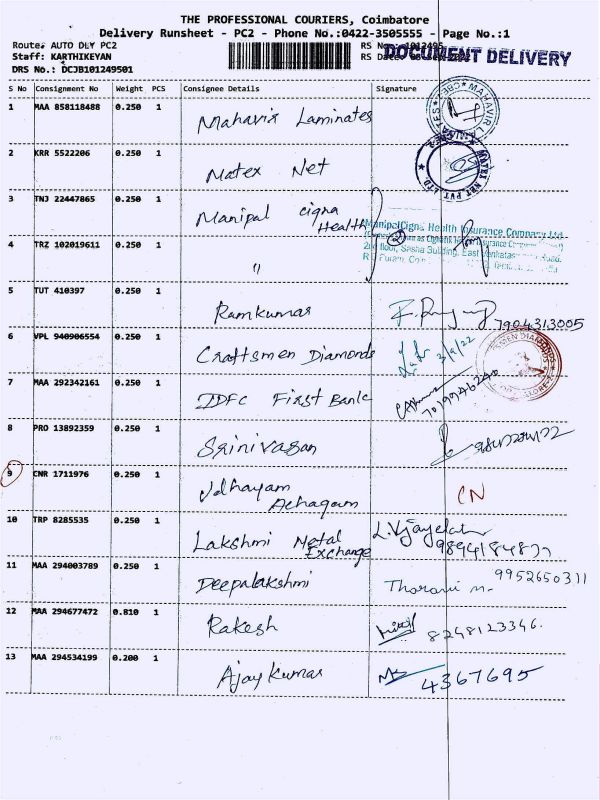 THE PROFESSIONAL COURIERS, Coimbatore
Delivery Runsheet - PC2 - Phone No.:0422-3505555 - Page No.:1
Route: AUTO DLY PC2 RS No.: 1012495
Staff: KARTHIKEYAN RS Date:
DOCUMENT DELIVERY
DRS No.: DCJB101249501
S No Consignment No Weight PCS Consignee Details Signature
1 MAA 858118488 0.250 1 Mahavir Laminates
2 KRR 5522206 0.250 1 Matex Net
MATEX NET PVT LTD
3 TNJ 22447865 0.250 1 Manipal cigna Health
ManipalCigna Health Insurance Company Ltd
2nd floor, Sasha Building, East Venkatas
4 TRZ 102019611 0.250 1 "
5 TUT 410397 0.250 1 Ramkumar 7904313005
6 VPL 940906554 0.250 1 Craftsmen Diamonds 3/9/22
7 MAA 292342161 0.250 1 IDFC First Bank
8 PRO 13892359 0.250 1 Srinivasan
9 CNR 1711976 0.250 1 Udhayam Achagam CN
10 TRP 8285535 0.250 1 Lakshmi Metal Exchange L.Vijayelat
11 MAA 294003789 0.250 1 Deepalakshmi Tharani n. 9952650311
12 MAA 294677472 0.810 1 Rakesh 8248123346.
13 MAA 294534199 0.200 1 Ajay Kumar 4367695